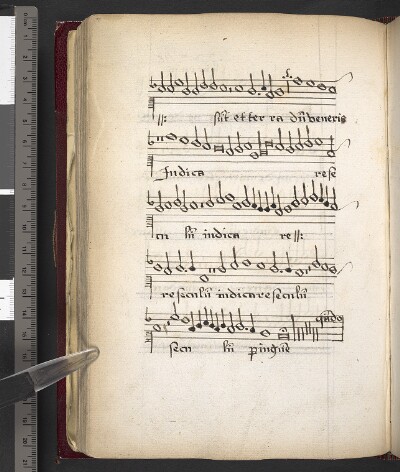 sūt et ter ra dū veneris
Iudica re se
cu lū iudica re
re seculū iudicare seculū
secu lū p ignē
quādo